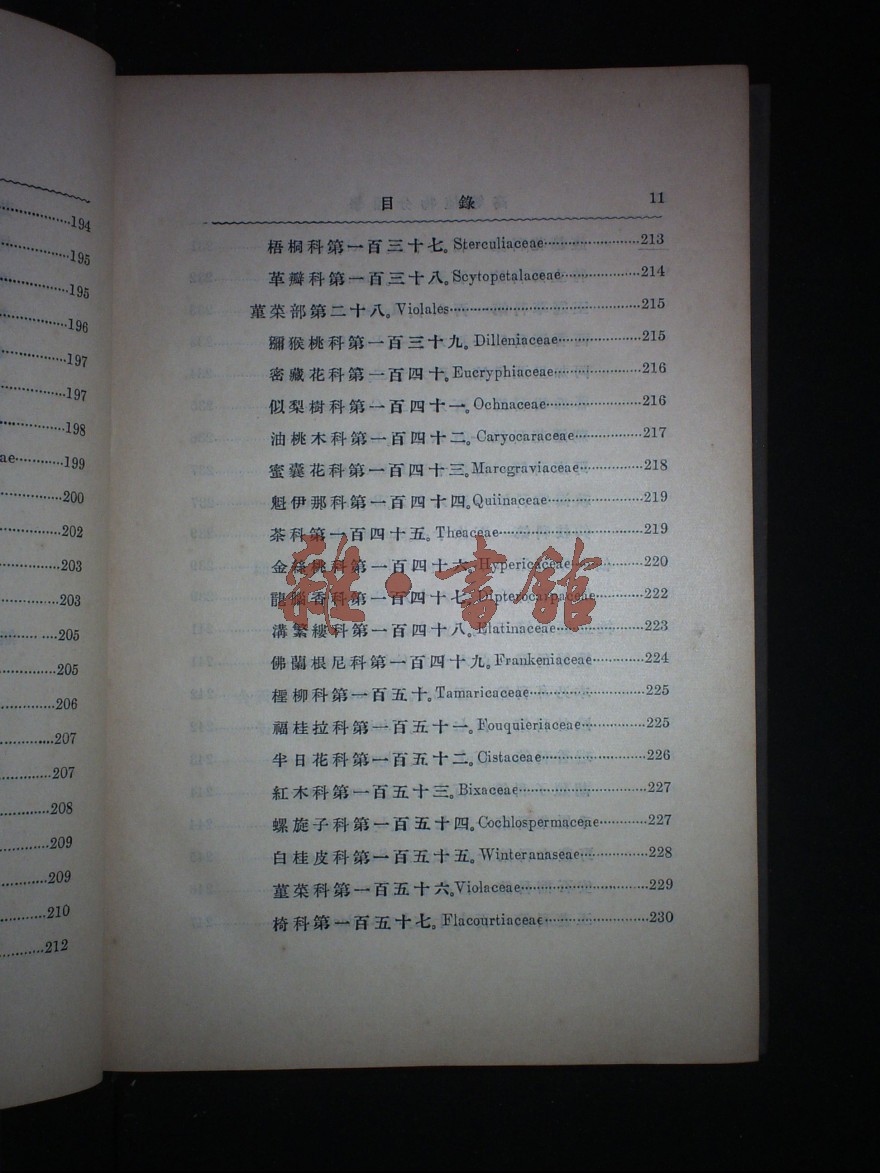 194
195
195
196
197
197
198
ae············199
200
202
203
203
205
205
206
207
207
208
209
209
210
212
目 錄 11
梧桐科第一百三十七。Sterculiaceae························213
革瓣科第一百三十八。Scytopetalaceae·····················214
菫菜部第二十八。Violales·······································215
獼猴桃科第一百三十九。Dilleniaceae·····················215
密藏花科第一百四十。Eucryphiaceae·····················216
似梨樹科第一百四十一。Ochnaceae························216
油桃木科第一百四十二。Caryocaraceae··················217
蜜囊花科第一百四十三。Marcgraviaceae·················218
魁伊那科第一百四十四。Quiinaceae························219
茶科第一百四十五。Theaceae·································219
金絲桃科第一百四十六。Hypericaceae·····················220
龍腦香科第一百四十七。Dipterocarpaceae···············222
溝繁縷科第一百四十八。Elatinaceae·······················223
佛蘭根尼科第一百四十九。Frankeniaceae················224
檉柳科第一百五十。Tamaricaceae···························225
福桂拉科第一百五十一。Fouquieriaceae···················225
半日花科第一百五十二。Cistaceae··························226
紅木科第一百五十三。Bixaceae······························227
螺旋子科第一百五十四。Cochlospermaceae··············227
白桂皮科第一百五十五。Winteranaseae··················228
菫菜科第一百五十六。Violaceae·····························229
椅科第一百五十七。Flacourtiaceae·························230
雜·書館